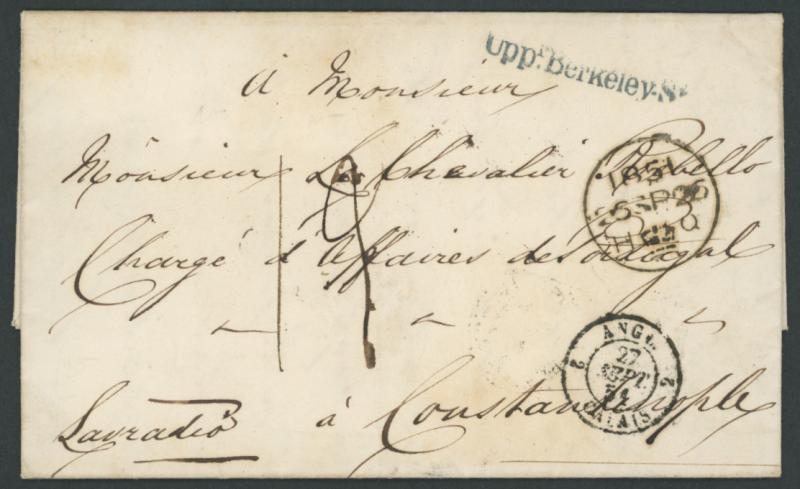 Uppr. Berkeley St
à Monsieur
Monsieur Le Chevalier Rebello
Chargé d'Affaires de Portugal
à Constantinople
Lavradio
1851
SP
ANGL.
2 27 2
SEPT.
51
CALAIS